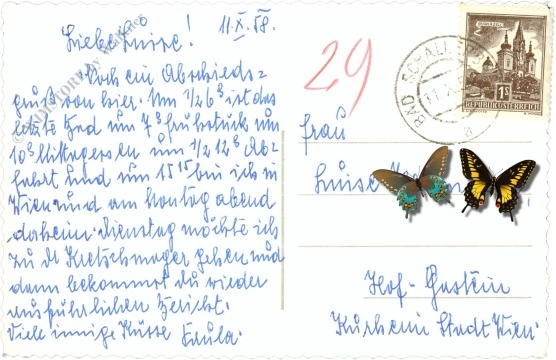 11.X.58.
Liebe Luise!
Noch ein Abschieds=
gruß von hier. Um 1/2 6h ist das
letzte Bad um 7h Frühstück um
10h Mittagessen um 1/2 12h Ab=
fahrt und um 15 15 bin ich in
Wien und am Montag abend
daheim. Dienstag möchte ich
zu dr Kretschmayer gehen und
dann bekommst du wieder
ausführlichen Bericht.
Viele innige Küsse Paula.
29
BAD SCHALL
11.X
a
MARIAZELL
1S
REPUBLIK ÖSTERREICH
Frau
Luise
Hof-Gastein
Kurheim Stadt Wien